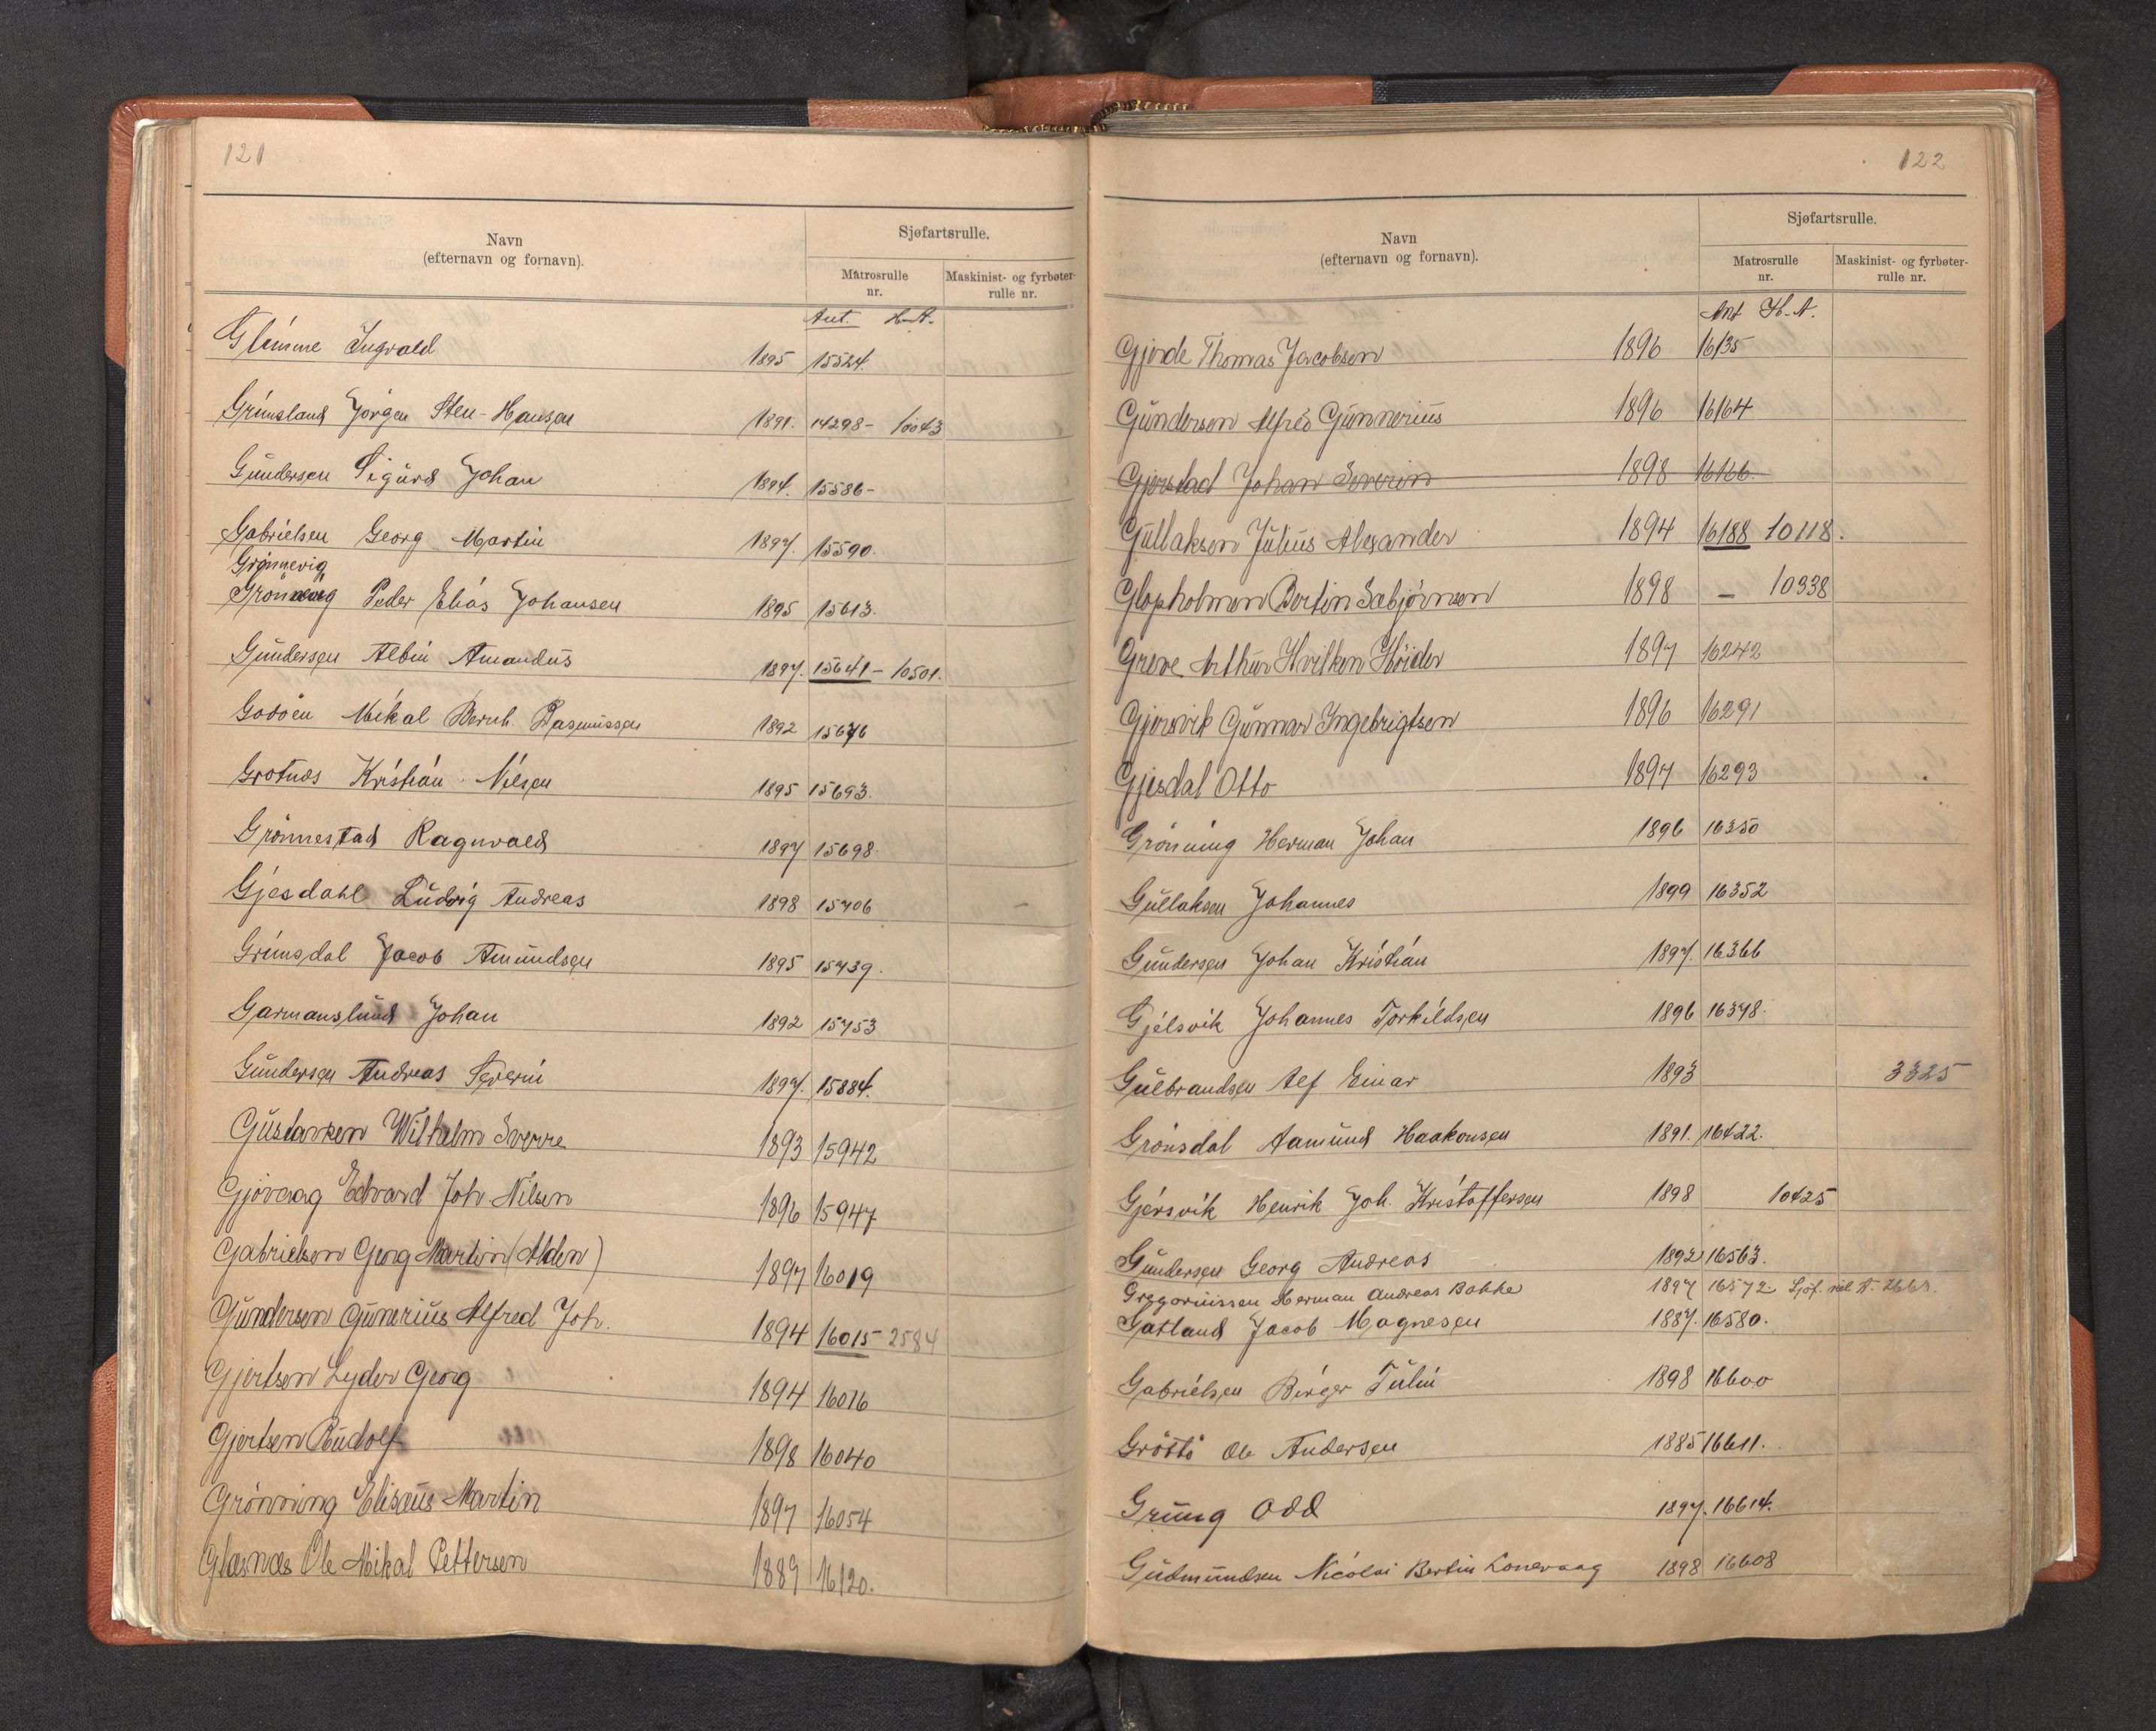 121
Navn
(efternavn og fornavn).
Sjøfartsrulle.
Matrosrulle
nr.
Maskinist- og fyrbøter-
rulle nr.
Ant. H-A.
Glimme Ingvald 1895 15524.
Grimsland Jørgen Sten-Hansen 1891. 14298- 10043
Gundersen Sigurd Johan 1894. 15586-
Gabrielsen Georg Martin 1897. 15590.
Grønnevig
Peder Elias Johansen 1895 15613.
Gundersen Albin Amandus 1897. 15641- 10501.
Godøen Mikal Bernh. Rasmussen 1892 15676
Grotnæs Kristian Nilsen 1895 15693.
Grønnestad Ragnvald 1897 15698.
Gjesdahl Ludvig Andreas 1898 15706
Grimsdal Jacob Amundsen 1895 15739.
Garmanslund Johan 1892 15753
Gundersen Andreas Severin 1897. 15884.
Gustavsen Wilhelm Sverre 1893 15942
Gjøvaag Edvard Joh Nilsen 1896 15947
Gabrielsen Georg Martin (Alden) 1897 16019
Gundersen Gunerius Alfred Joh. 1894 16015- 2584
Gjertsen Lyder Georg 1894 16016
Gjertsen Rudolf 1898 16040
Grønning Elisæus Martin 1897 16054
Glæsnæs Ole Mikal Pettersen 1889 16120.
122
Navn
(efternavn og fornavn).
Sjøfartsrulle.
Matrosrulle
nr.
Maskinist- og fyrbøter-
rulle nr.
Ant H.-A.
Gjerde Thomas Jacobsen 1896 16135
Gundersen Alfred Gunnerius 1896 16164
Gjerstad Johan Severin 1898 16166.
Gullaksen Julius Alexander 1894 16188 10118.
Glopholmen Bertin Sæbjørnsen 1898 – 10338
Greve Arthur Hvilken Krider 1897 16242
Gjersvik Gunnar Ingebrigtsen 1896 16291
Gjesdal Otto 1897 16293
Grønning Herman Johan 1896 16350
Gullaksen Johannes 1899 16352
Gundersen Johan Kristian 1897. 16366
Gjelsvik Johannes Torkildsen 1896 16378.
Gulbrandsen Alf Einar 1893 3325
Grønsdal Aamund Haakonsen 1891. 16422.
Gjersvik Henrik Joh. Kristoffersen 1898 10425
Gundersen Georg Andreas 1892 16563.
Greggoriussen Herman Andreas Bakke 1897 16572 Sjøf. rul A.
Gatland Jacob Magnesen 1887. 16580.
Gabrielsen Birger Tulin 1898 16600
Grøttø Ole Andersen 1885 16611.
Grung Odd 1897. 16614.
Gudmundsen Nicolai Bertin Lonevaag 1898 16608